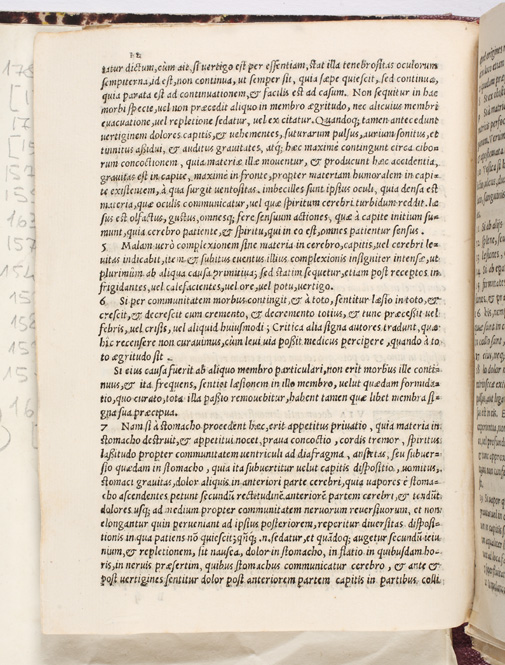 tatur dictum, cùm ait, si vertigo est per essentiam, stat illa tenebrositas oculorum
sempiterna, id est, non continua, ut semper sit, quia sæpe quiescit, sed continua,
quia parata est ad continuationem, & facilis est ad casum. Non sequitur in hac
morbi specie, uel non præcedit aliquo in membro ægritudo, nec alicuius membri
euacuatione, uel repletione sedatur, uel excitatur. Quandoq; tamen antecedunt
uertiginem dolores capitis, & uehementes, suturarum pulsus, aurium sonitus, et
tinnitus aßidui, & auditus grauitates, atq; hæc maximè contingunt circa cibo=
rum concoctionem, quia materiæ illæ mouentur, & producunt hæc accidentia,
grauitas est in capite, maximè in fronte, propter materiam humoralem in capi=
te existentem, à qua surgit uentositas. imbecilles sunt ipsius oculi, quia densa est
materia, quæ oculis communicatur, uel quæ spiritum cerebri turbidum reddit. læ
sus est olfactus, gustus, omnesq; ferè sensuum actiones, quæ à capite initium su=
munt, quia cerebro patiente, & spiritu, qui in eo est, omnes patientur sensus.
5 Malam uerò complexionem sine materia in cerebro, capitis, uel cerebri le=
uitas indicabit, item & subitus euentus illius complexionis insigniter intensæ, ut
plurimùm ab aliqua causa primitiua; sed statim sequetur, etiam post receptos in
frigidantes, uel calefacientes, uel ore, uel potu, uertigo.
6 Si per communitatem morbus contingit, & à toto, sentitur læsio in toto, &
crescit, & decrescit cum cremento, & decremento totius, & tunc præceßit uel
febris, uel crisis, uel aliquid huiusmodi; Critica alia signa autores tradunt, quæ
hic recensere non curauimus, cùm leui uia poßit medicus percipere, quando à to=
to ægritudo sit.
Si eius causa fuerit ab aliquo membro particulari, non erit morbus ille conti=
nuus, & ita frequens, sentiet læsionem in illo membro, uelut quædam formida=
tio, quo curato, tota illa paßio remouebitur, habent tamen quæ libet membra si=
gna sua præcipua.
7 Nam si à stomacho procedent hæc, erit appetitus priuatio, quia materia in
stomacho destruit, & appetitui nocet, praua concoctio, cordis tremor, spiritus
laßitudo propter communitatem uentriculi ad diafragma, anxietas, seu subuer=
sio quædam in stomacho, quia ita subuertitur uelut capitis dispositio, uomitus,
stomaci grauitas, dolor aliquis in anteriori parte cerebri, quia uapores è stoma=
cho ascendentes petunt secundũ rectitudinẽ anteriorẽ partem cerebri, & tendũt
dolores usq; ad medium propter communitatem neruorum reuersiuorum, et non
elongantur quin perueniant ad ipsius posteriorem, reperitur diuersitas disposi=
tionis in qua patiens nõ quiescit; sedatur, et quãdoq; augetur secundũ ieiu
nium, & repletionem, sit nausea, dolor in stomacho, in flatio in quibusdam ho=
ris, in neruis præsertim, quibus stomachus communicatur cerebro, & ante &
post uertiges sentitur dolor post anteriorem partem capitis in partibus colli